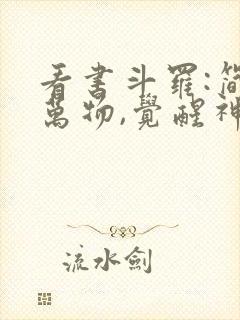 看書斗羅:簡
萬物,覺醒神
流水劍